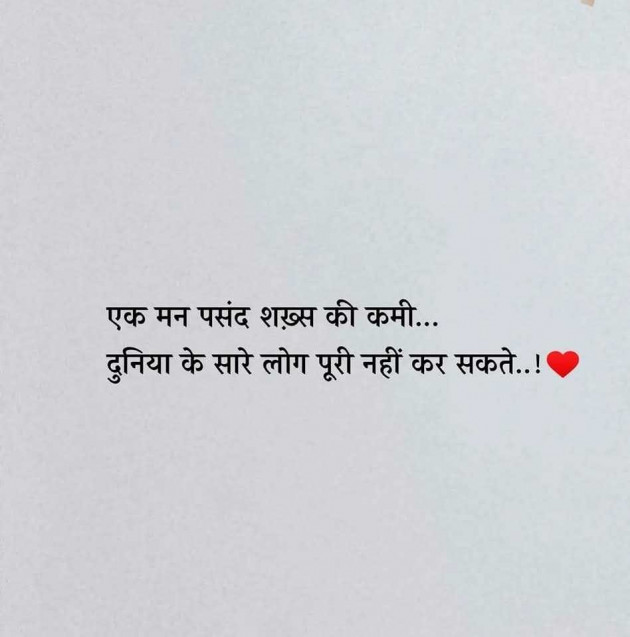 एक मन पसंद शख़्स की कमी...
दुनिया के सारे लोग पूरी नहीं कर सकते..!❤️